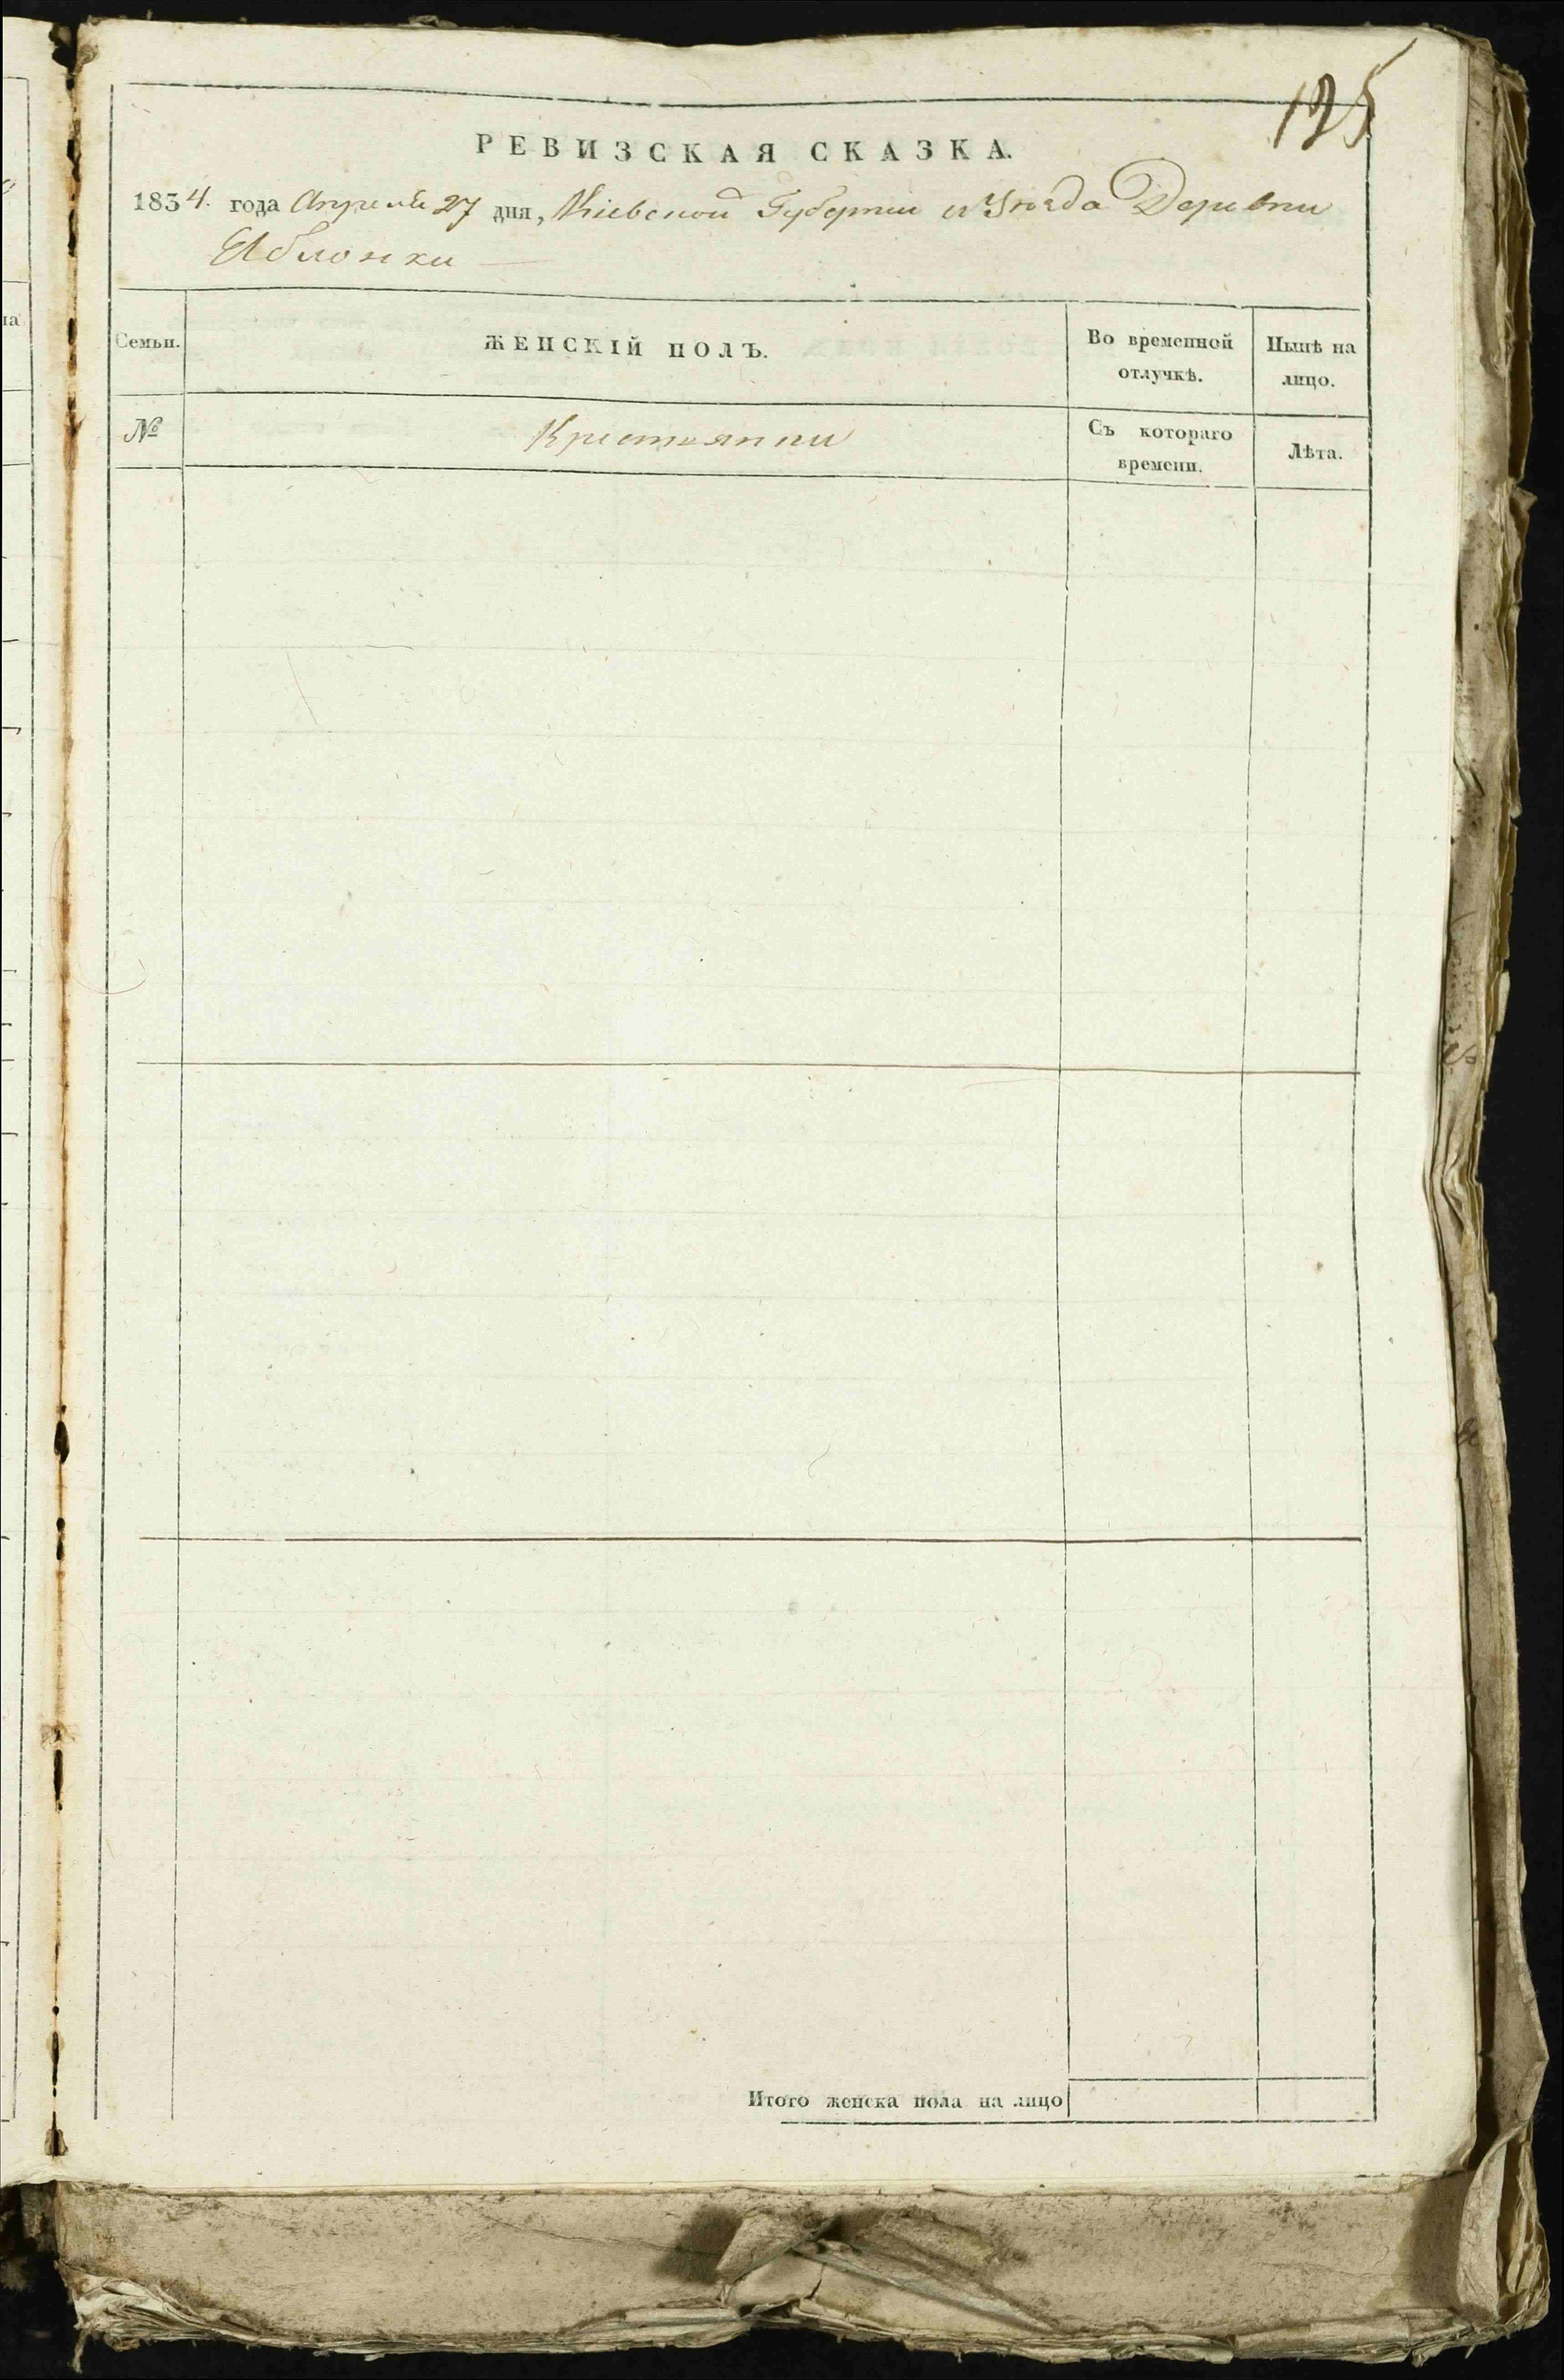 125
РЕВИЗСКАЯ СКАЗКА.
1834. года Апреля 27 дня, Кіевской Губерніи и Уѣзда Деревни
Яблонки —
Семьи.
ЖЕНСКІЙ ПОЛЪ.
Во временной
отлучкѣ.
Нынѣ на
лицо.
№
Крестьянки
Съ котораго
времени.
Лѣта.
Итого женска пола на лицо